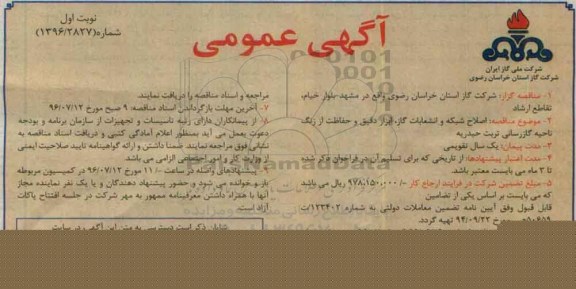 آگهی عمومی
نوبت اول
شماره(۱۳۹۶/۲۸۲۷)
شرکت ملی گاز ایران
شرکت گاز استان خراسان رضوی
۱- مناقصه گزار: شرکت گاز استان خراسان رضوی واقع در مشهد-بلوار خیام،
تقاطع ارشاد
۲- موضوع مناقصه: اصلاح شبکه و انشعابات گاز، ابزار دقیق و حفاظت از زنگ
ناحیه گازرسانی تربت حیدریه
۳- مدت پیمان: یک سال تقویمی
۴- مدت اعتبار پیشنهادها: از تاریخی که برای تسلیم آن در فراخوان ذکر شده
تا ۳ ماه می بایست معتبر باشد.
۵- مبلغ تضمین شرکت در فرآیند ارجاع کار -/۹۷۸،۱۵۰،۰۰۰ ریال می باشد
که می بایست بر اساس یکی از تضامین
قابل قبول وفق آیین نامه تضمین معاملات دولتی به شماره ۱۲۳۴۰۲/ت
۵۰۶۵۹ه مورخ ۹۴/۰۹/۲۲ تهیه گردد.
مراجعه و اسناد مناقصه را دریافت نمایند.
۷- آخرین مهلت بازگرداندن اسناد مناقصه: ۹ صبح مورخ ۹۶/۰۷/۱۲
۸- از پیمانکاران دارای رتبه تاسیسات و تجهیزات از سازمان برنامه و بودجه
دعوت بعمل می آید بمنظور اعلام آمادگی کتبی و دریافت اسناد مناقصه به
نشانی فوق مراجعه نمایند. ضمنا داشتن و ارائه گواهینامه تایید صلاحیت ایمنی
از وزارت کار و امور اجتماعی الزامی می باشد
پیشنهادهای واصله در ساعت -/۱۱ مورخ ۹۶/۰۷/۱۲ در کمیسیون مربوطه
باز و خوانده می شود و حضور پیشنهاد دهندگان و یا یک نفر نماینده مجاز
آنها با همراه داشتن معرفینامه ممهور به مهر شرکت در جلسه افتتاح پاکات
آزاد است.
شایان ذکر است دسترسی به متن این آگهی در سایت